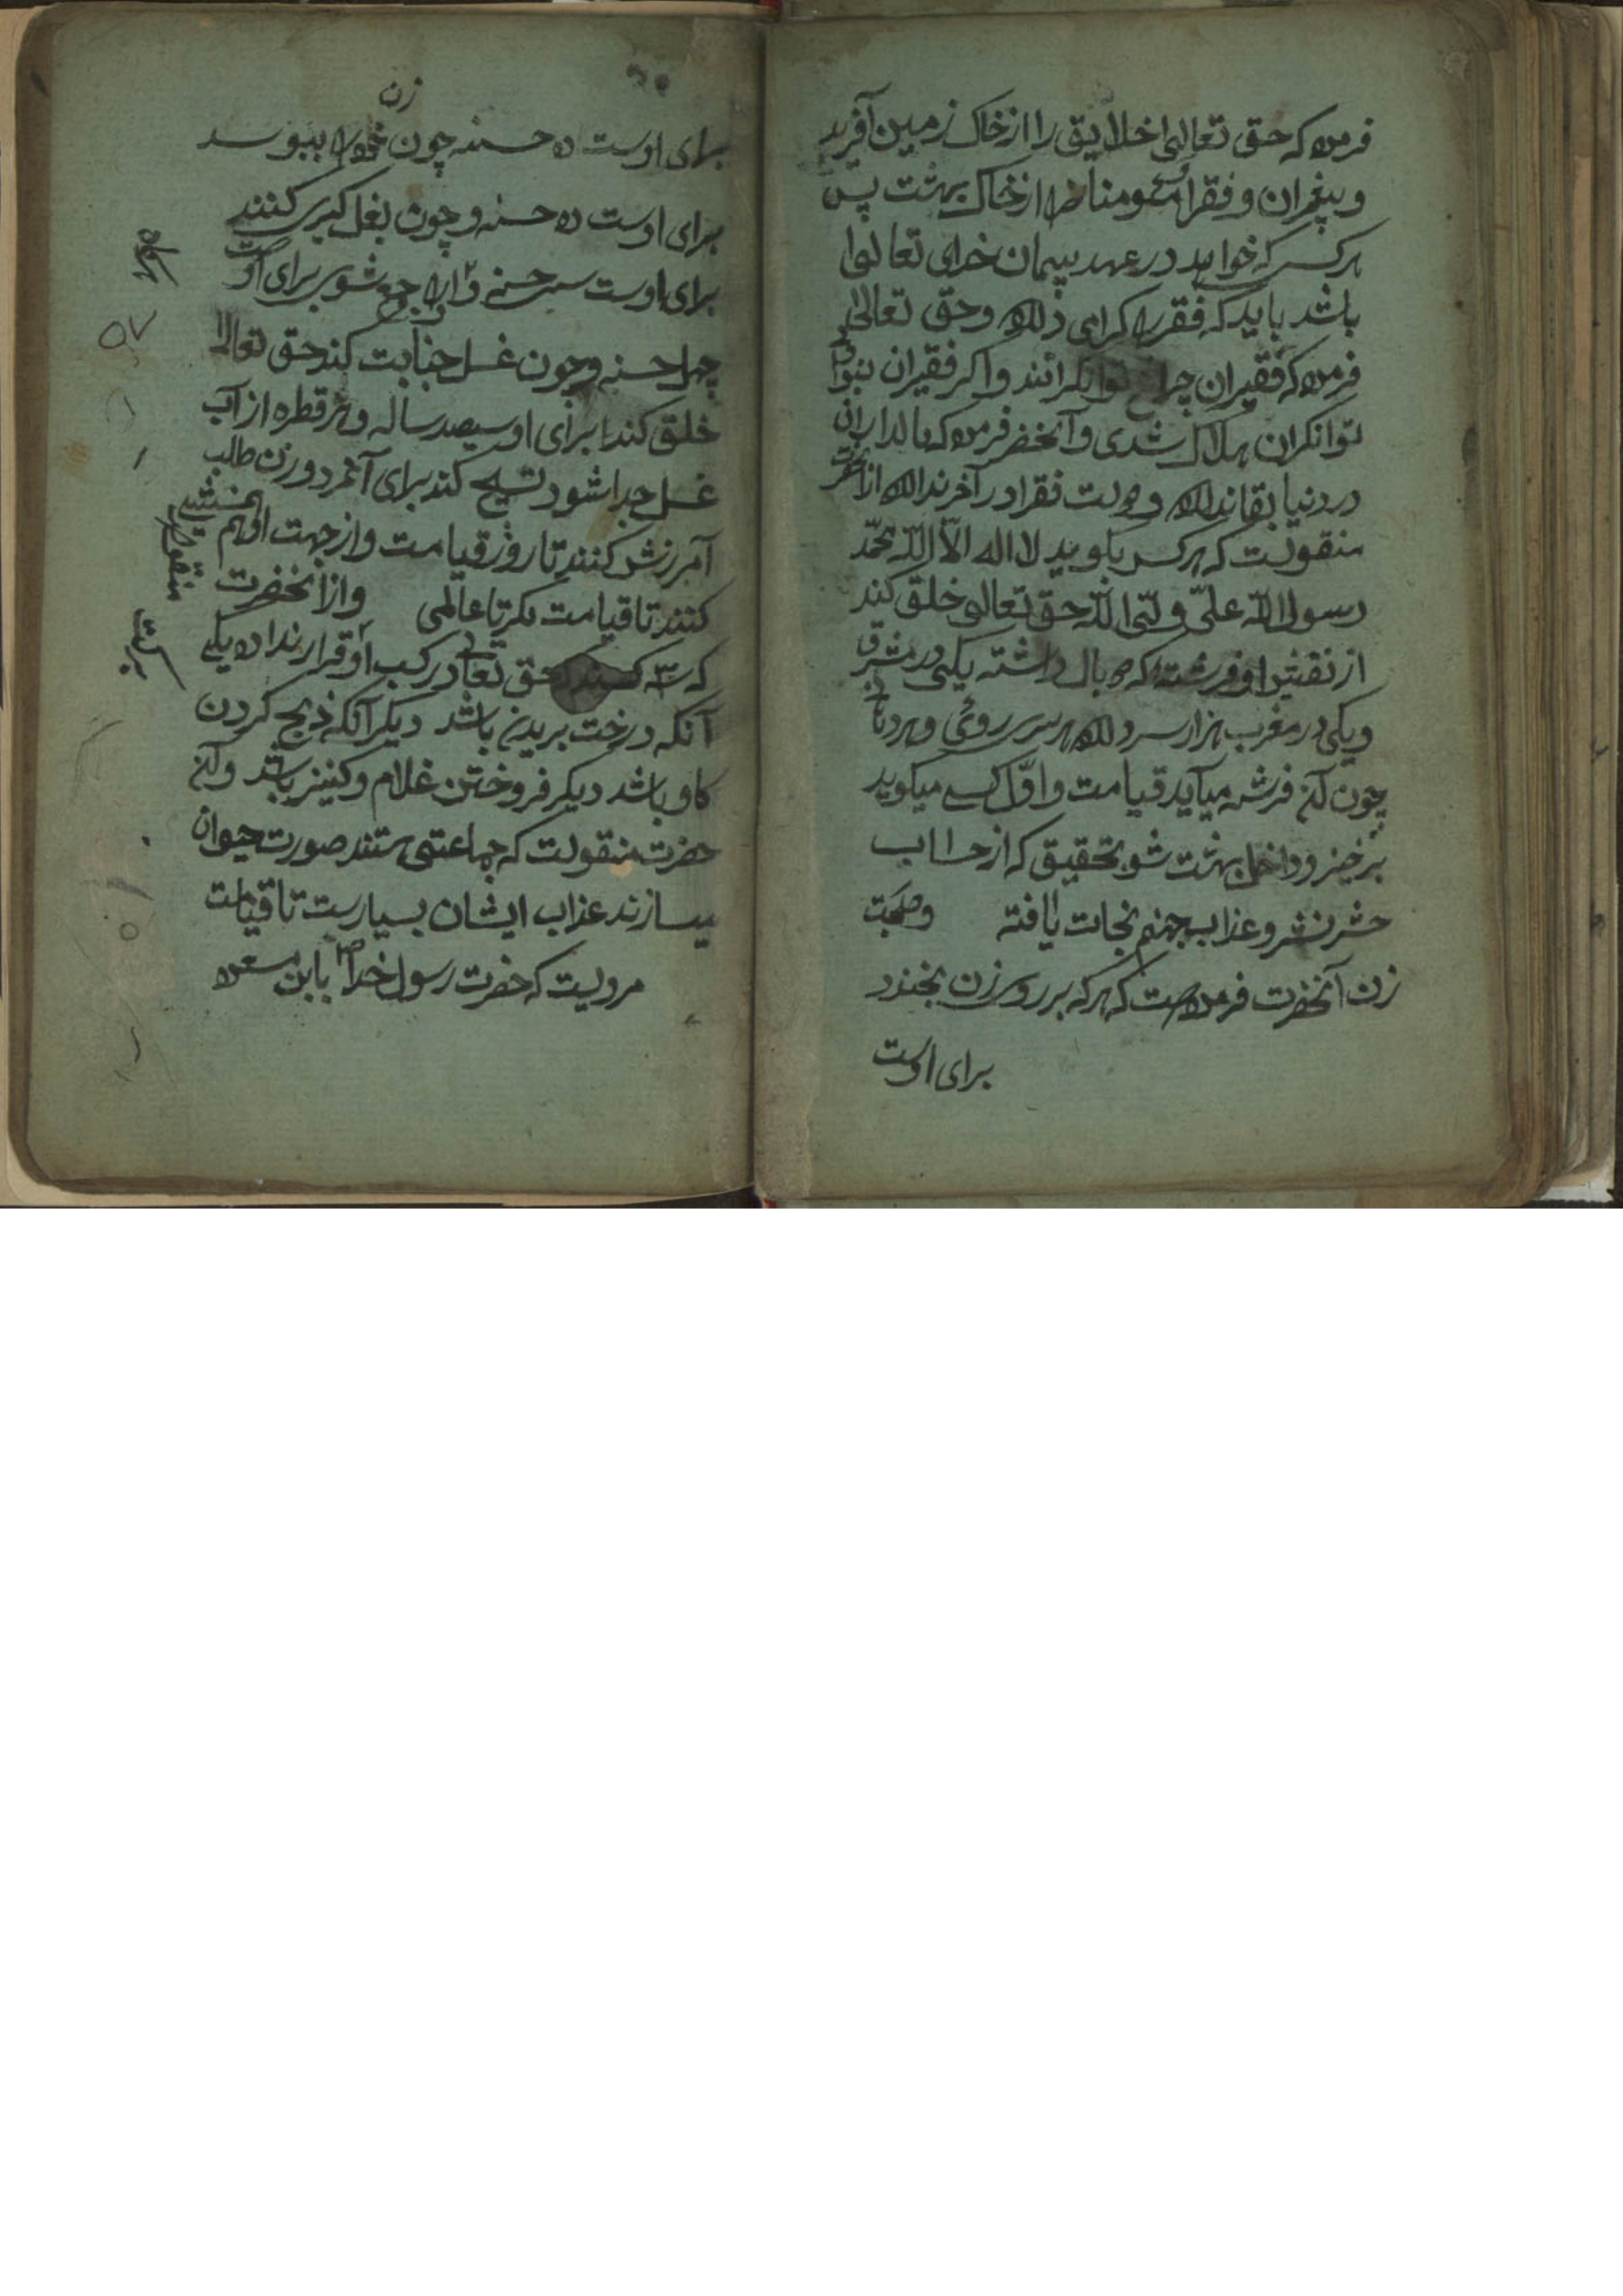 فرموده که حق تعالی خلایق را از خاک زمین آفرید
و پیغمران و فقرا از خاک بهشت پس
هر کس که خواهد در عهد پیمان خدای تعالی
باشد باید که فقرا کرامی و حق تعالی
فرموده که فقیران چراغ توانکرانند و اکر فقیران نبودی
توانکران هلاک شدی و آنحضر فرموده که مالداران
در دنیا بقا ندارد و دولت فقرا در آخر ندارد از آنحضرت
منقولست که هر کس بکوید لا اله الا الله محمد
رسول الله علی ولی الله حق تعالی خلق کند
از نفس او فرشته که دو بال داشته یکی در مشرق
و یکی در مغرب هزار سر دارد هر سر روی و هر
چون آن فرشه میآید قیامت و اول کسی میکوید
برخیز و داخل بهشت شو بتحقیق که از حساب
حشر نشر و عذاب جهنم نجات یافته وصحبت
زن آنحضرت فرموده است که هر که بر روی زن بخندد
برای اوست
زن
برای اوست ده حسنه چون خود را ببوسد
برای اوست ده حسنه و چون بغل کیری کنند
برای اوست سی حسنه و چون جمع شوی برای اوست
چهل حسنه و چون غسل جنابت کند حق تعالا
خلق کند برای او سیصد ساله و هر قطره از آب
غسل جدا شود تسبیح کند برای آنمرد و زن طلب
آمرزش کنند تا روز قیامت و از جهت او هم
کنند تا قیامت مکر تا عالمی و از آنحضرت
که سه کسند حق تعالی در کسب او قرار نداده یکی
آنکه درخت بریدن باشد دیکر آنکه ذبح کردن
کاو باشد دیکر فروختن غلام و کنیز باشد و از آن
حضرت منقولست که جماعتی هستند صورت حیوان
میسازند عذاب ایشان بسیارست تا قیامت
مرویست که حضرت رسول خدا ص بابن مسعود
منقول
برکت